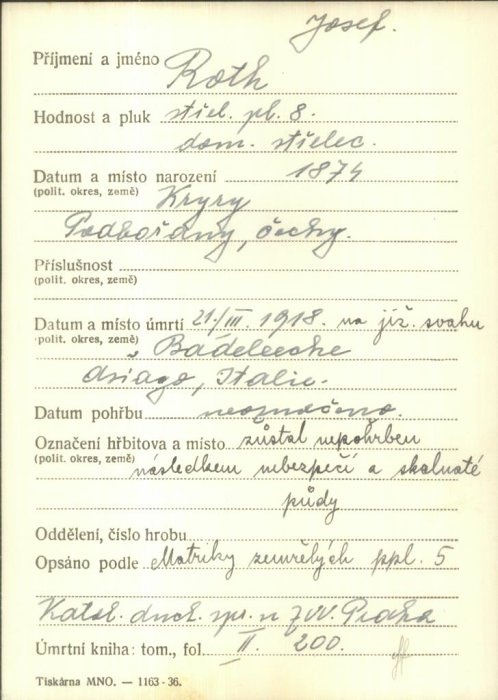 Josef.
Příjmení a jméno Roth
Hodnost a pluk střel. pl. 8.
dom. střelec.
Datum a místo narození 1874
(polit. okres, země) Kryry
Podbořany, Čechy.
Příslušnost
(polit. okres, země)
Datum a místo úmrtí 21./III. 1918. na již. svahu
polit. okres, země)
Asiago, Italie.
Datum pohřbu neoznačeno.
Označení hřbitova a místo zůstal nepohřben
(polit. okres, země) následkem nebezpečí a skalnaté
půdy
Oddělení, číslo hrobu
Opsáno podle Matriky zemřelých ppl. 5
Katol. duch. spr. n ZVV. Praha
Úmrtní kniha: tom., fol. II. 200.
Tiskárna MNO. — 1163 - 36.